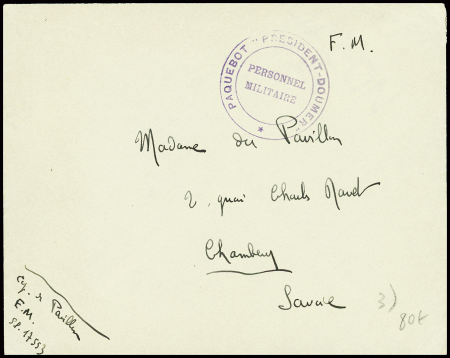 F.M.
PAQUEBOT "PRESIDENT-DOUMER"
PERSONNEL
MILITAIRE
Madame du Pavillon
2, quai Charles
Chambéry
Savoie
Pavillon
E.M.
SP. 17553
3)
80f